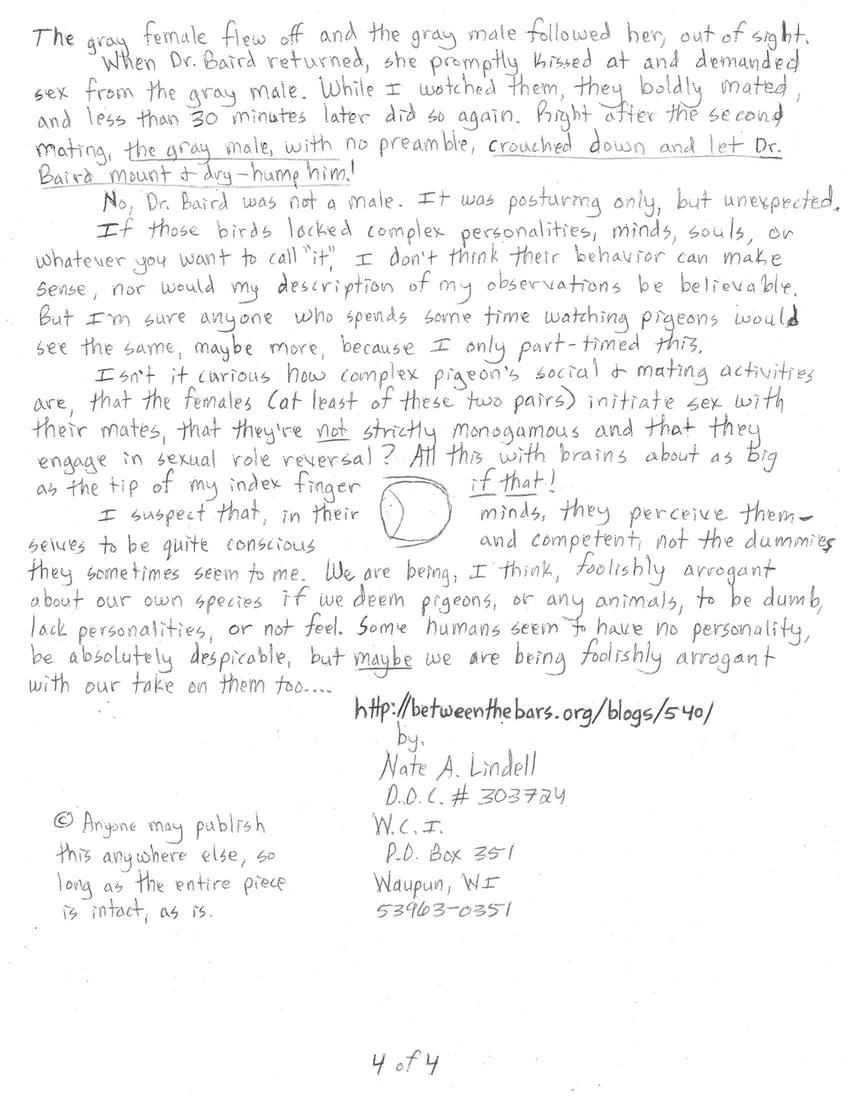 The gray female flew off and the gray male followed her, out of sight.
When Dr. Baird returned, she promptly kissed at and demanded
sex from the gray male. While I watched them, they boldly mated,
and less than 30 minutes later did so again. Right after the second
mating, the gray male, with no preamble, crouched down and let Dr.
Baird mount & dry-hump him!
No, Dr. Baird was not a male. It was posturing only, but unexpected.
If those birds lacked complex personalities, minds, souls, or
whatever you want to call "it", I don't think their behavior can make
sense, nor would my description of my observations be believable.
But I'm sure anyone who spends some time watching pigeons would
see the same, maybe more, because I only part-timed this.
Isn't it curious how complex pigeon's social & mating activities
are, that the females (at least of these two pairs) initiate sex with
their mates, that they're not strictly monogamous and that they
engage in sexual role reversal? All this with brains about as big
as the tip of my index finger if that!
I suspect that, in their minds, they perceive them-
selves to be quite conscious and competent, not the dummies
they sometimes seem to me. We are being, I think, foolishly arrogant
about our own species if we deem pigeons, or any animals, to be dumb,
lack personalities, or not feel. Some humans seem to have no personality,
be absolutely despicable, but maybe we are being foolishly arrogant
with our take on them too....
http://betweenthebars.org/blogs/540/
by,
Nate A. Lindell
D.O.C. # 303724
W.C.I.
P.O. Box 351
Waupun, WI
53963-0351
© Anyone may publish
this anywhere else, so
long as the entire piece
is intact, as is.
4 of 4